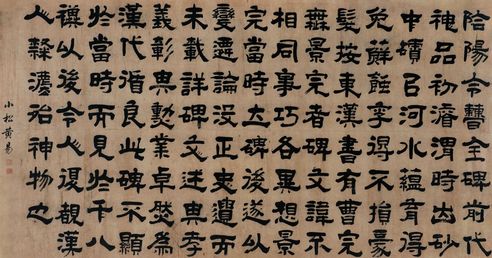 郃陽令曹全碑前代
神品初濬渭時出砂
中㠯河水蘊育得
免蘚蝕字得不損豪
髮按東漢書有曹完
無景完者碑文諱不
相同事巧各異想景
完當時立碑後遂以
變遷論没正史遺而
未載詳碑文述典孝
義彰典勳業卓犖為
漢代循良此碑不顯
於當時而見於千八
禩以後令人復觀漢
人隸灋殆神物也
小松黃易